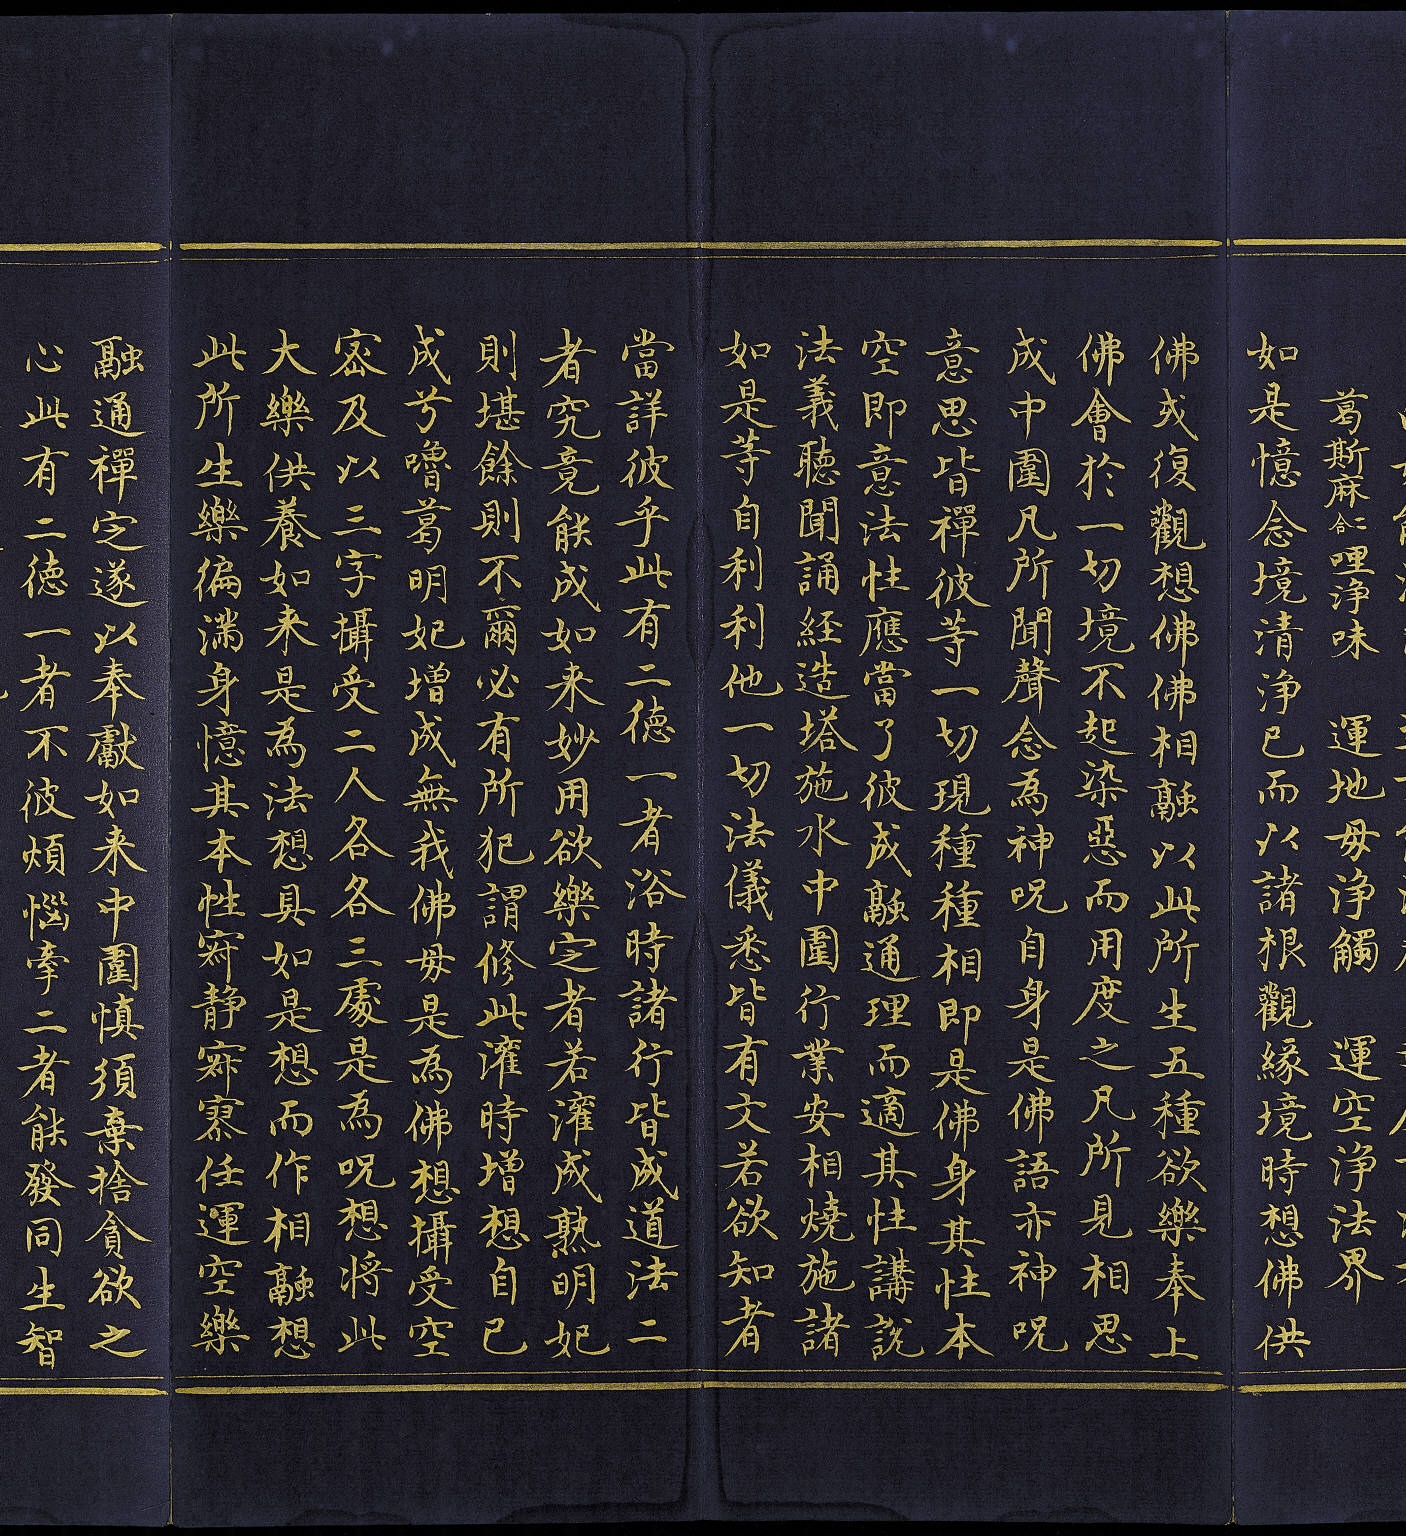 葛斯麻二合哩淨味　運地毋淨觸　運空淨法界
如是憶念境清淨已而以諸根觀緣境時想佛供
佛或復觀想佛佛相融以此所生五種欲樂奉上
佛會於一切境不起染惡而用度之凡所見相思
成中圍凡所聞聲念為神呪自身是佛語亦神呪
意思皆禪彼等一切現種種相即是佛身其性本
空即意法性應當了彼成融通理而適其性講說
法義聽聞誦經造塔施水中圍行業安相燒施諸
如是等自利利他一切法儀悉皆有文若欲知者
當詳彼乎此有二德一者浴時諸行皆成道法二
者究竟能成如来妙用欲樂定者若灌成熟明妃
則堪餘則不爾必有所犯謂修此灌時增想自已
成兮嚕葛明妃增成無我佛毋是為佛想攝受空
密及以三字攝受二人各各三處是為呪想将此
大樂供養如来是為法想具如是想而作相融想
此所生樂徧滿身憶其本性寂静寂寥任運空樂
融通禪定遂以奉獻如来中圍慎須棄捨貪欲之
心此有二德一者不彼煩惱牽二者能發同生智